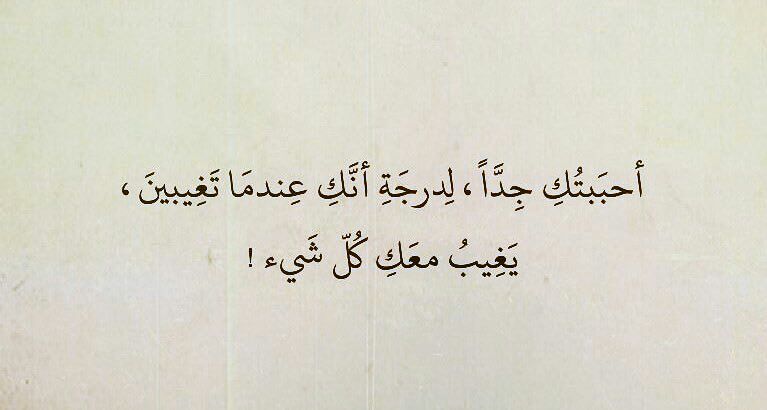 أحبَبتُكِ جِدَّاً ، لِدرجَةِ أنَّكِ عِندمَا تَغِيبينَ ،
يَغِيبُ معَكِ كُلّ شَيء !